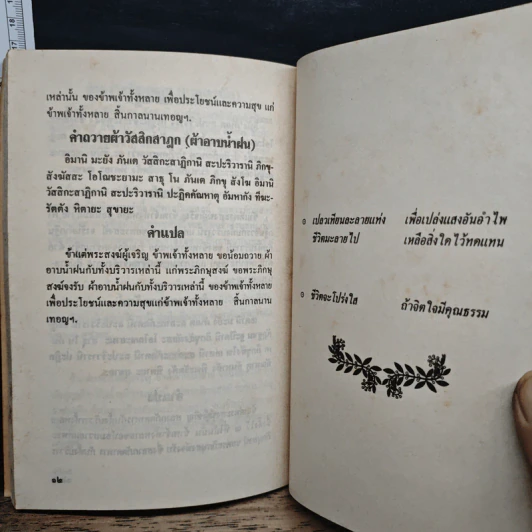 เหล่านั้น ของข้าพเจ้าทั้งหลาย เพื่อประโยชน์และความสุข แก่
ข้าพเจ้าทั้งหลาย สิ้นกาลนานเทอญฯ.
คำถวายผ้าวัสสิกสาฎก (ผ้าอาบน้ำฝน)
อิมานิ มะยัง ภันเต วัสสิกะสาฏิกานิ สะปะริวารานิ ภิกขุ-
สังฆัสสะ โอโณชะยามะ สาธุ โน ภันเต ภิกขุ สังโฆ อิมานิ
วัสสิกะสาฏิกานิ สะปะริวารานิ ปะฏิคคัณหาตุ อัมหากัง ทีฆะ-
รัตตัง หิตายะ สุขายะ
คำแปล
ข้าแต่พระสงฆ์ผู้เจริญ ข้าพเจ้าทั้งหลาย ขอน้อมถวาย ผ้า
อาบน้ำฝนกับทั้งบริวารเหล่านี้ แก่พระภิกษุสงฆ์ ขอพระภิกษุ
สงฆ์จงรับ ผ้าอาบน้ำฝนกับทั้งบริวารเหล่านี้ ของข้าพเจ้าทั้งหลาย
เพื่อประโยชน์และความสุขแก่ข้าพเจ้าทั้งหลาย สิ้นกาลนาน
เทอญฯ.
๑๒
๏ เปลวเทียนละลายแท่ง เพื่อเปล่งแสงอันอำไพ
ชีวิตมะลายไป เหลือสิ่งใดไว้ทดแทน
๏ ชีวิตจะโปร่งใส ถ้าจิตใจมีคุณธรรม